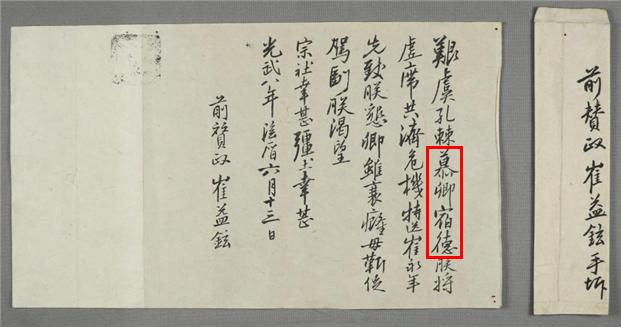 前贊政崔益鉉手坼
艱虞孔棘慕卿宿德朕將
虛席共濟危機特送崔永年
先致朕懇卿雖衰癃毋靳促
駕副朕渴望
宗社幸甚疆土幸甚
光武八年陰曆六月十三日
前贊政 崔益鉉